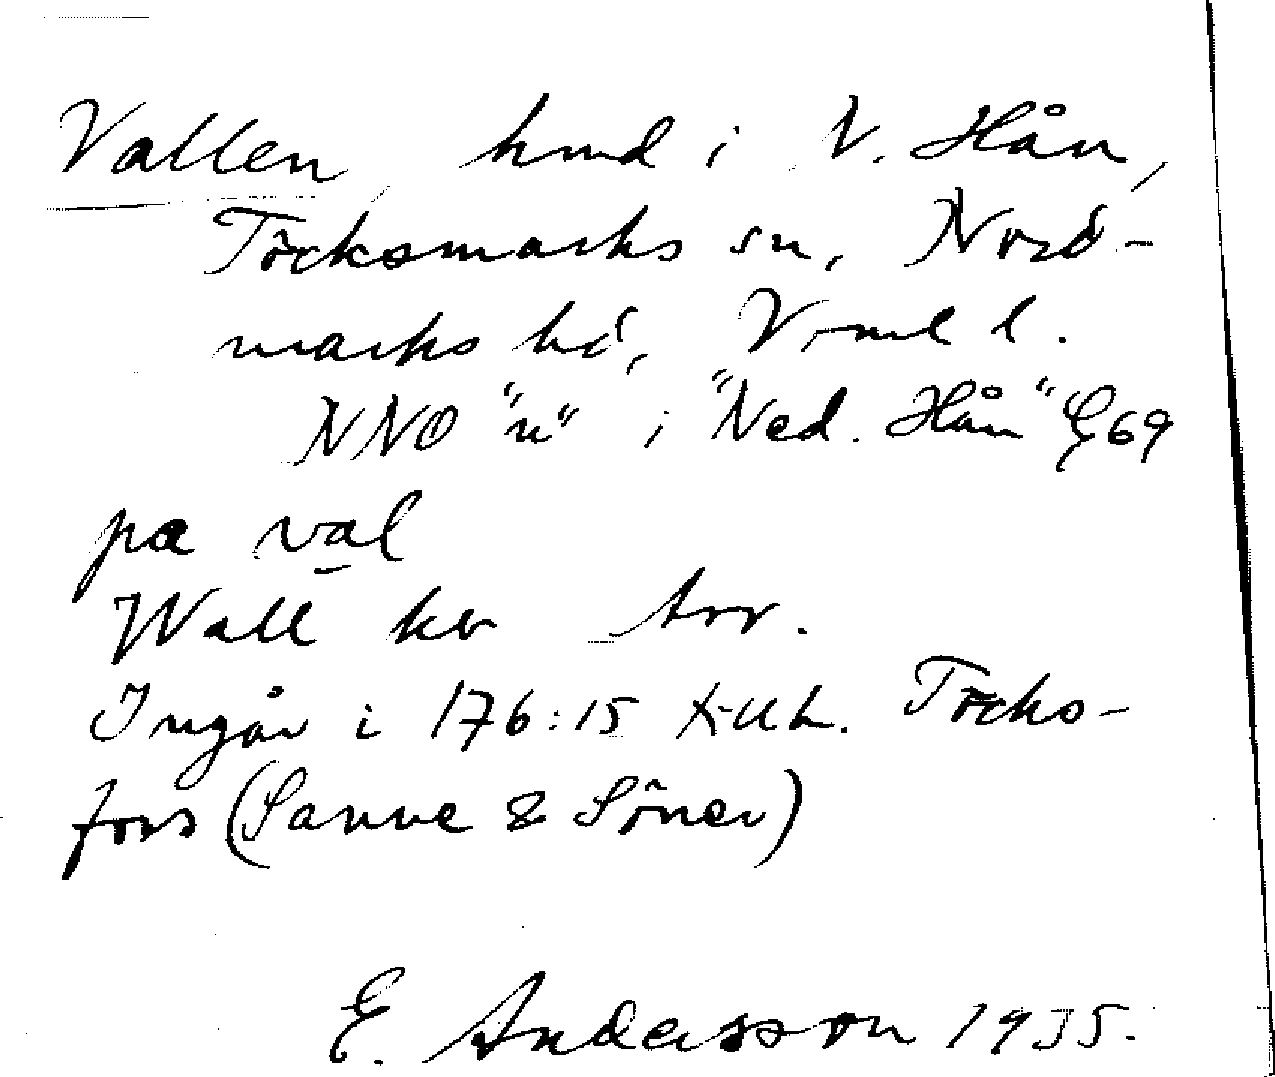 Vallen, hmd i N. Hån,
Töcksmarks sn, Nord-
marks hd, Vrml l.
NNO "n" i "Ned. Hån" G69
pa val
Wall ker Arr.
Ingår i 176:15 Töcks-
fors (Sanne & Söner)
E. Andersson 1935.